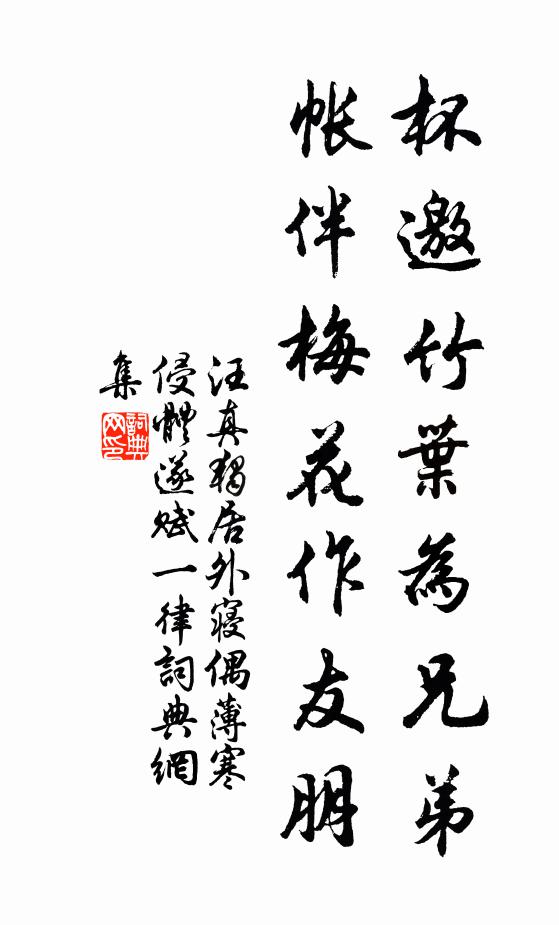 杯邀竹葉為兄弟
帳伴梅花作友朋
汪真獨居外寝偶薄寒
侵體遂賦一律詞典網
集
詞典
网印